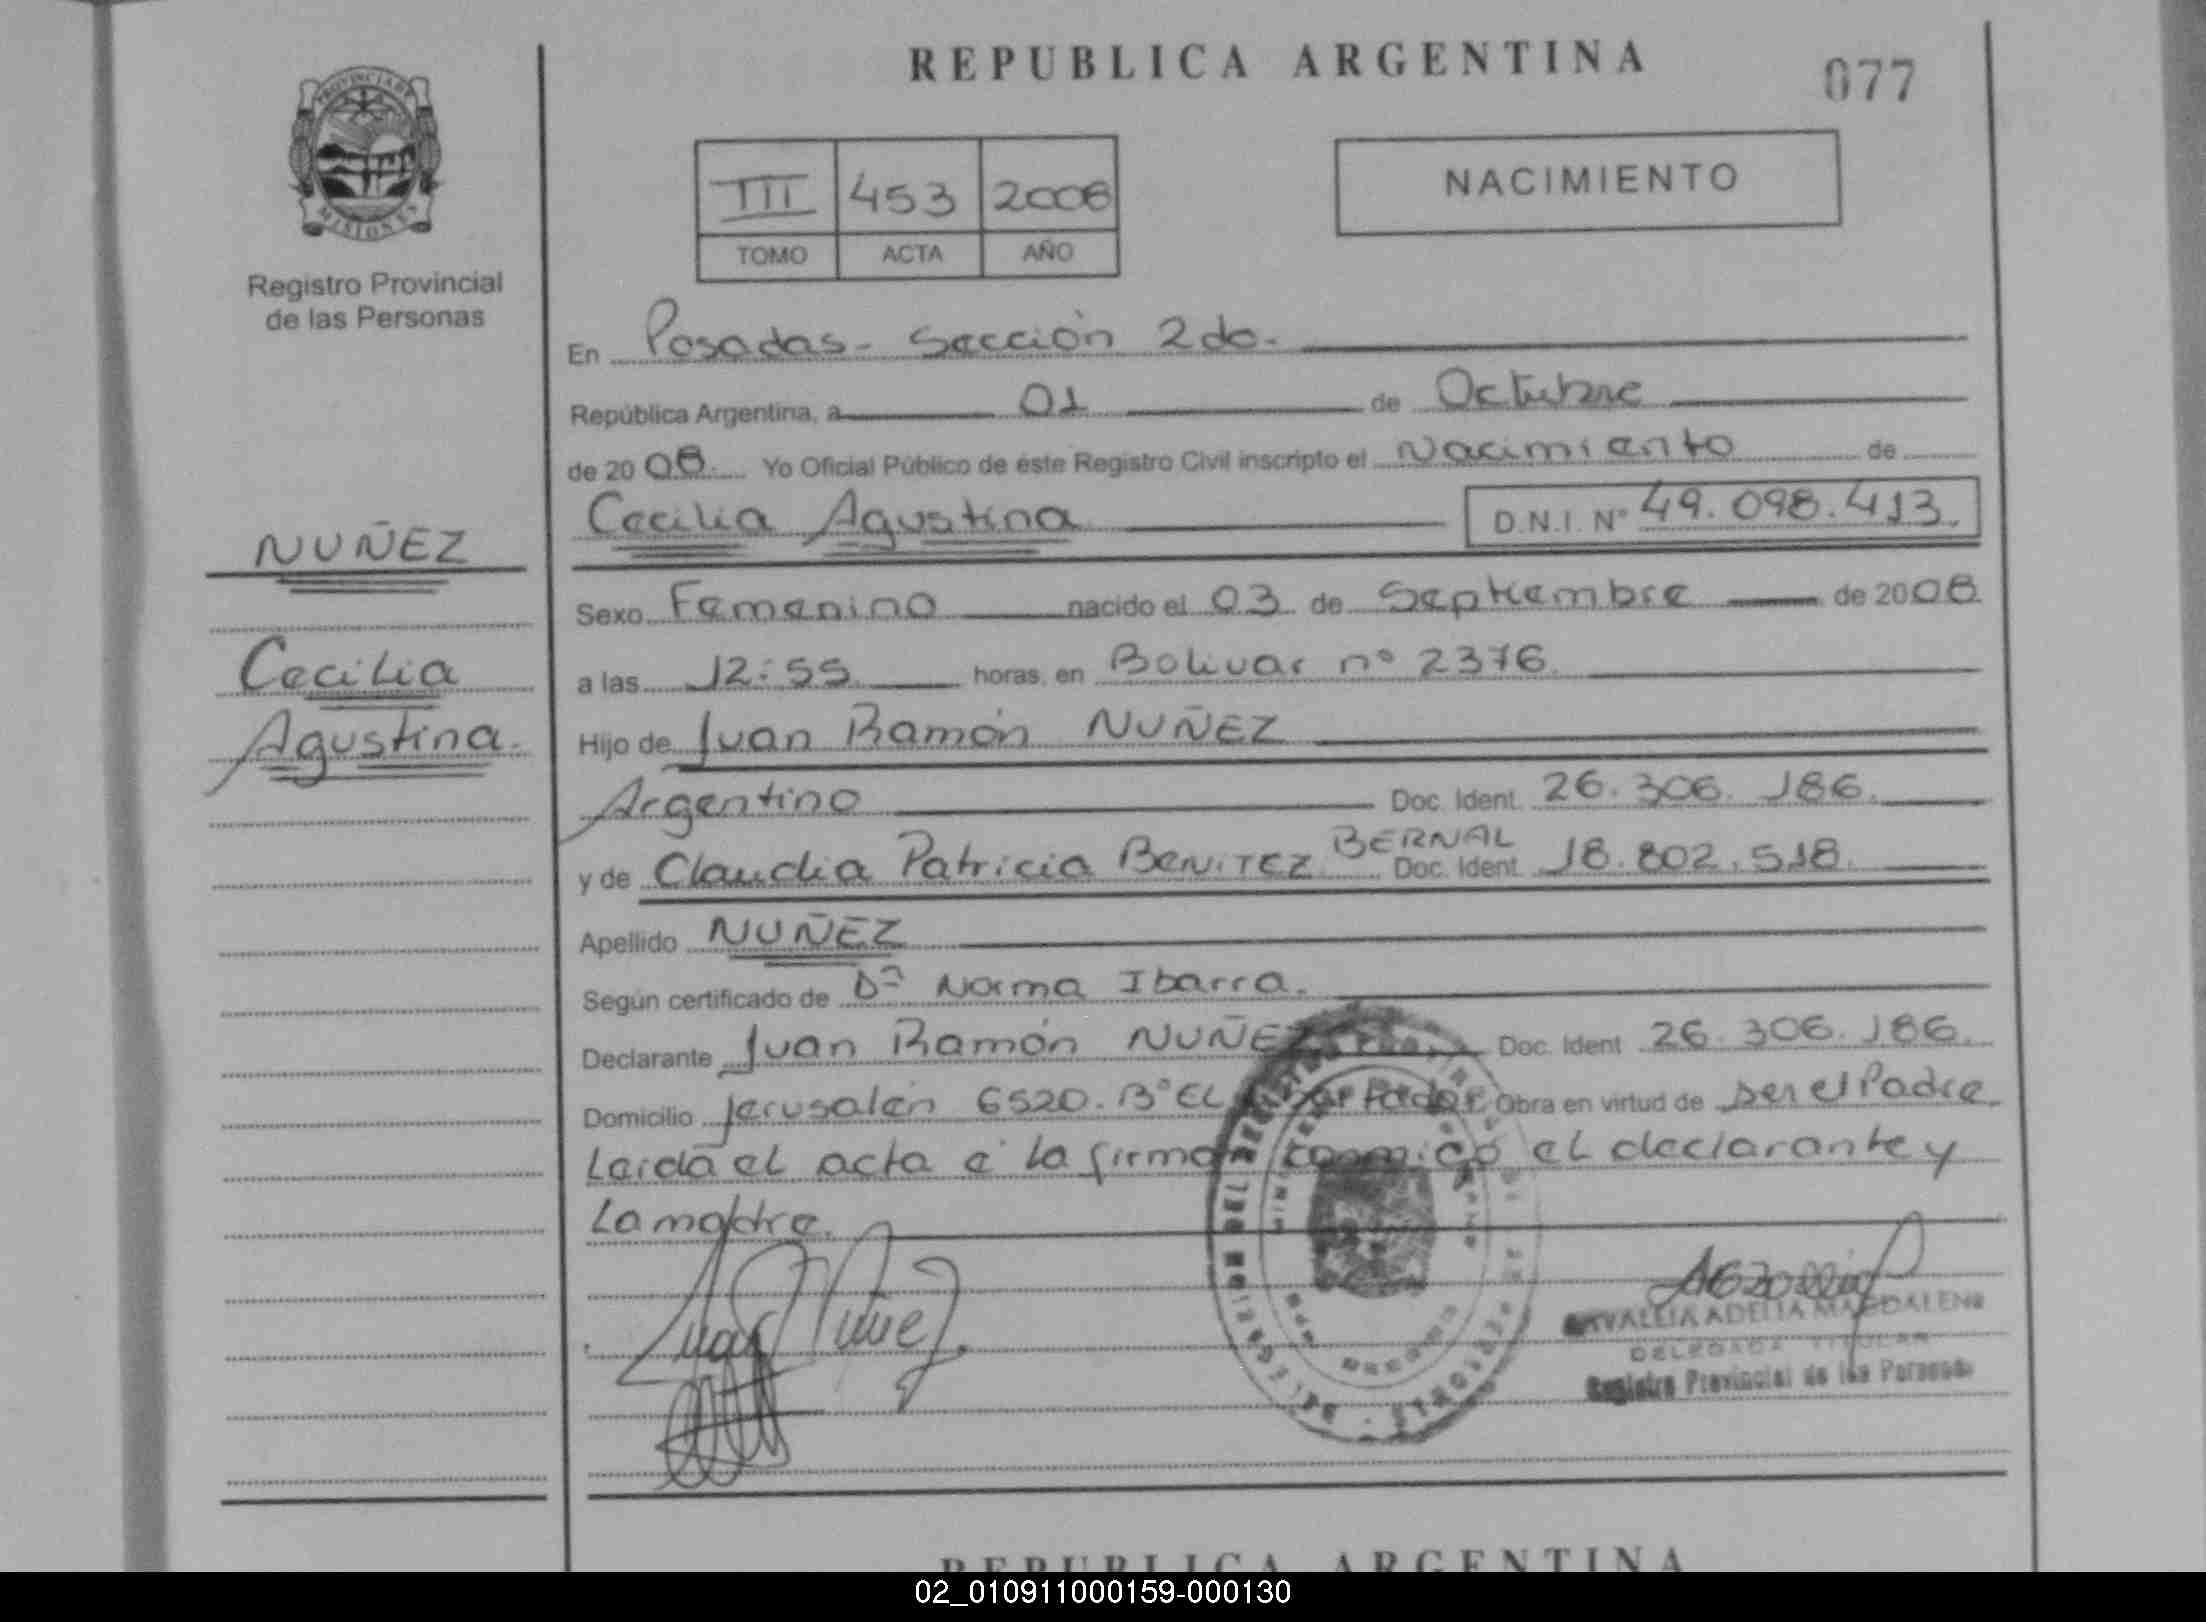 REPUBLICA ARGENTINA
077
PROVINCIA DE
MISIONES
Registro Provincial
de las Personas
III 453 2008
TOMO ACTA AÑO
NACIMIENTO
En Posadas - Sección 2da.
República Argentina, a 01 de Octubre
de 2008. Yo Oficial Público de éste Registro Civil inscripto el Nacimiento de
Cecilia Agustina D.N.I. Nº 49.098.413.
NUÑEZ
Cecilia
Agustina.
Sexo Femenino nacido el 03 de Septiembre de 2008
a las 12:55 horas, en Bolivar nº 2376.
Hijo de Juan Ramón NUÑEZ
Argentino Doc. Ident. 26.306.186.
y de Claudia Patricia BENITEZ BERNAL Doc. Ident. 18.802.518.
Apellido NUÑEZ
Según certificado de Dª Norma Ibarra.
Declarante Juan Ramón NUÑEZ Doc. Ident 26.306.186.
Domicilio Jerusalén 6520. Bº EL Obra en virtud de ser el Padre
Leída el acta e la firman conmigo el declarante y
La madre.
ADELIA MAGDALENA
DELEGADA TITULAR
Registro Provincial de las Personas
REPUBLICA ARGENTINA
02_010911000159-000130